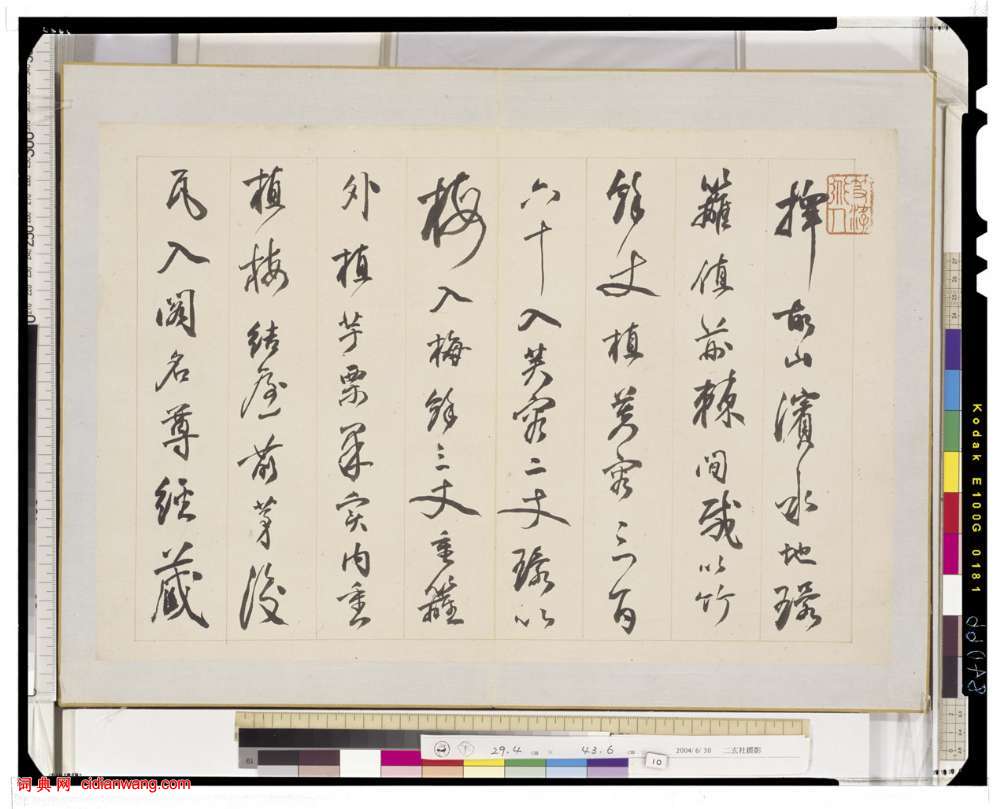 擇故山濱水地環
籬植荆棘間栽以竹
餘丈植芙容三百
六十入芙容二丈環以
梅入梅餘三丈重籬
外植芋栗果实内重
植梅結屋前茅後
瓦入閣名尊經藏
29.4 cm × 43.6 cm
2004/6/30 二玄社摄影
10
Kodak E100G 0181
词典网 cidianwang.com